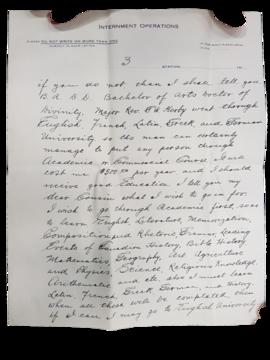 INTERNMENT OPERATIONS
PLEASE DO NOT WRITE ON MORE THAN ONE
SUBJECT IN EACH LETTER
STATION
3
if you do not then I shall tell you
B.A. D.D. Bachelor of Arts Doctor of
Divinity. Major Rev. Kirby went through
English, French, Latin, Greek and German
University so this man can certainly
manage to put any person through
Academic or Commercial Course, and
cost me per year and I should
receive good Education. I tell you my
dear Cousin what I wish to gain for.
I wish to go through Academic first, so as
to learn English Literature, Memorization,
Composition and Rhetoric Grammar, Reading
Events of Canadian History, British History
Mathematics, Geography, Art, Agriculture
and Physics, Science, Religious Knowledge,
Arithmetic and etc. also I must learn
Latin, French, Greek German, and History.
when all these will be completed then
if I can I may go to English University